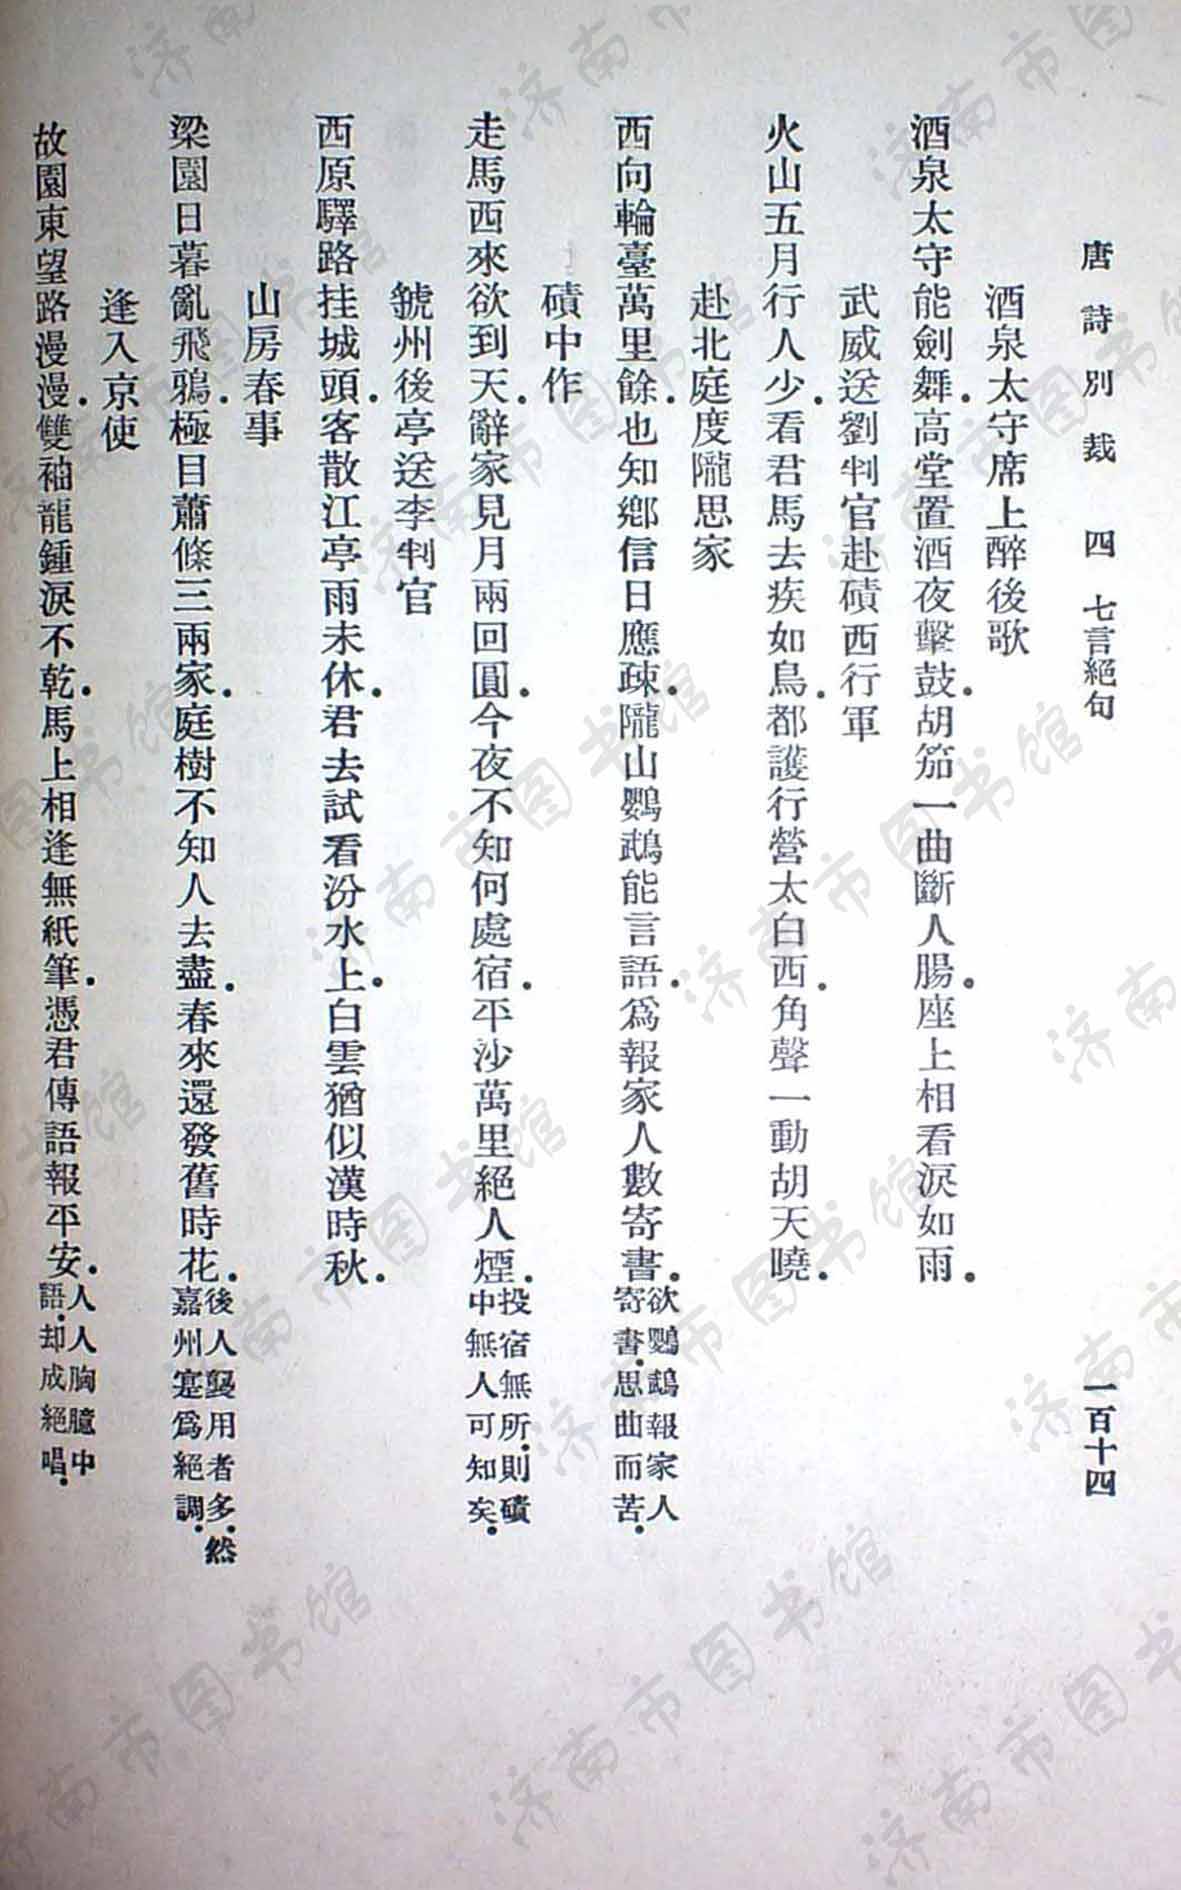 唐詩別裁 四 七言絕句 一百十四
酒泉太守席上醉後歌
酒泉太守能劍舞．高堂置酒夜擊鼓．胡笳一曲斷人腸．座上相看淚如雨．
武威送劉判官赴磧西行軍
火山五月行人少．看君馬去疾如鳥．都護行營太白西．角聲一動胡天曉．
赴北庭度隴思家
西向輪臺萬里餘．也知鄉信日應疎．隴山鸚鵡能言語．爲報家人數寄書．欲鸚鵡報家人
寄書．思曲而苦．
磧中作
走馬西來欲到天．辭家見月兩回圓．今夜不知何處宿．平沙萬里絕人煙．投宿無所．則磧
中無人可知矣．
虢州後亭送李判官
西原驛路挂城頭．客散江亭雨未休．君去試看汾水上．白雲猶似漢時秋．
山房春事
梁園日暮亂飛鴉．極目蕭條三兩家．庭樹不知人去盡．春來還發舊時花．後人襲用者多．然
嘉州寔爲絕調．
逢入京使
故園東望路漫漫．雙袖龍鍾淚不乾．馬上相逢無紙筆．憑君傳語報平安．人人胸臆中
語．却成絕唱．
济南市图书馆